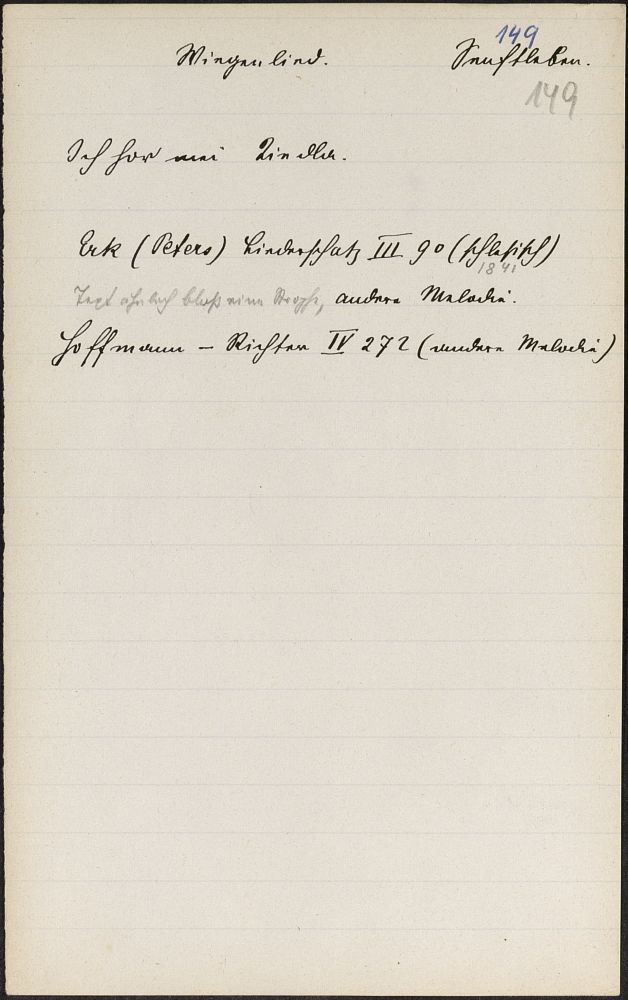 149
Wiegenlied. Senftleben.
149
Ich hor mei
Erk (Peters) Liederschatz III 90 (schlesisch)
1841
Text ähnlich bloß eine Strophe, andere Melodie.
Hoffmann – Richter IV 272 (andere Melodie)